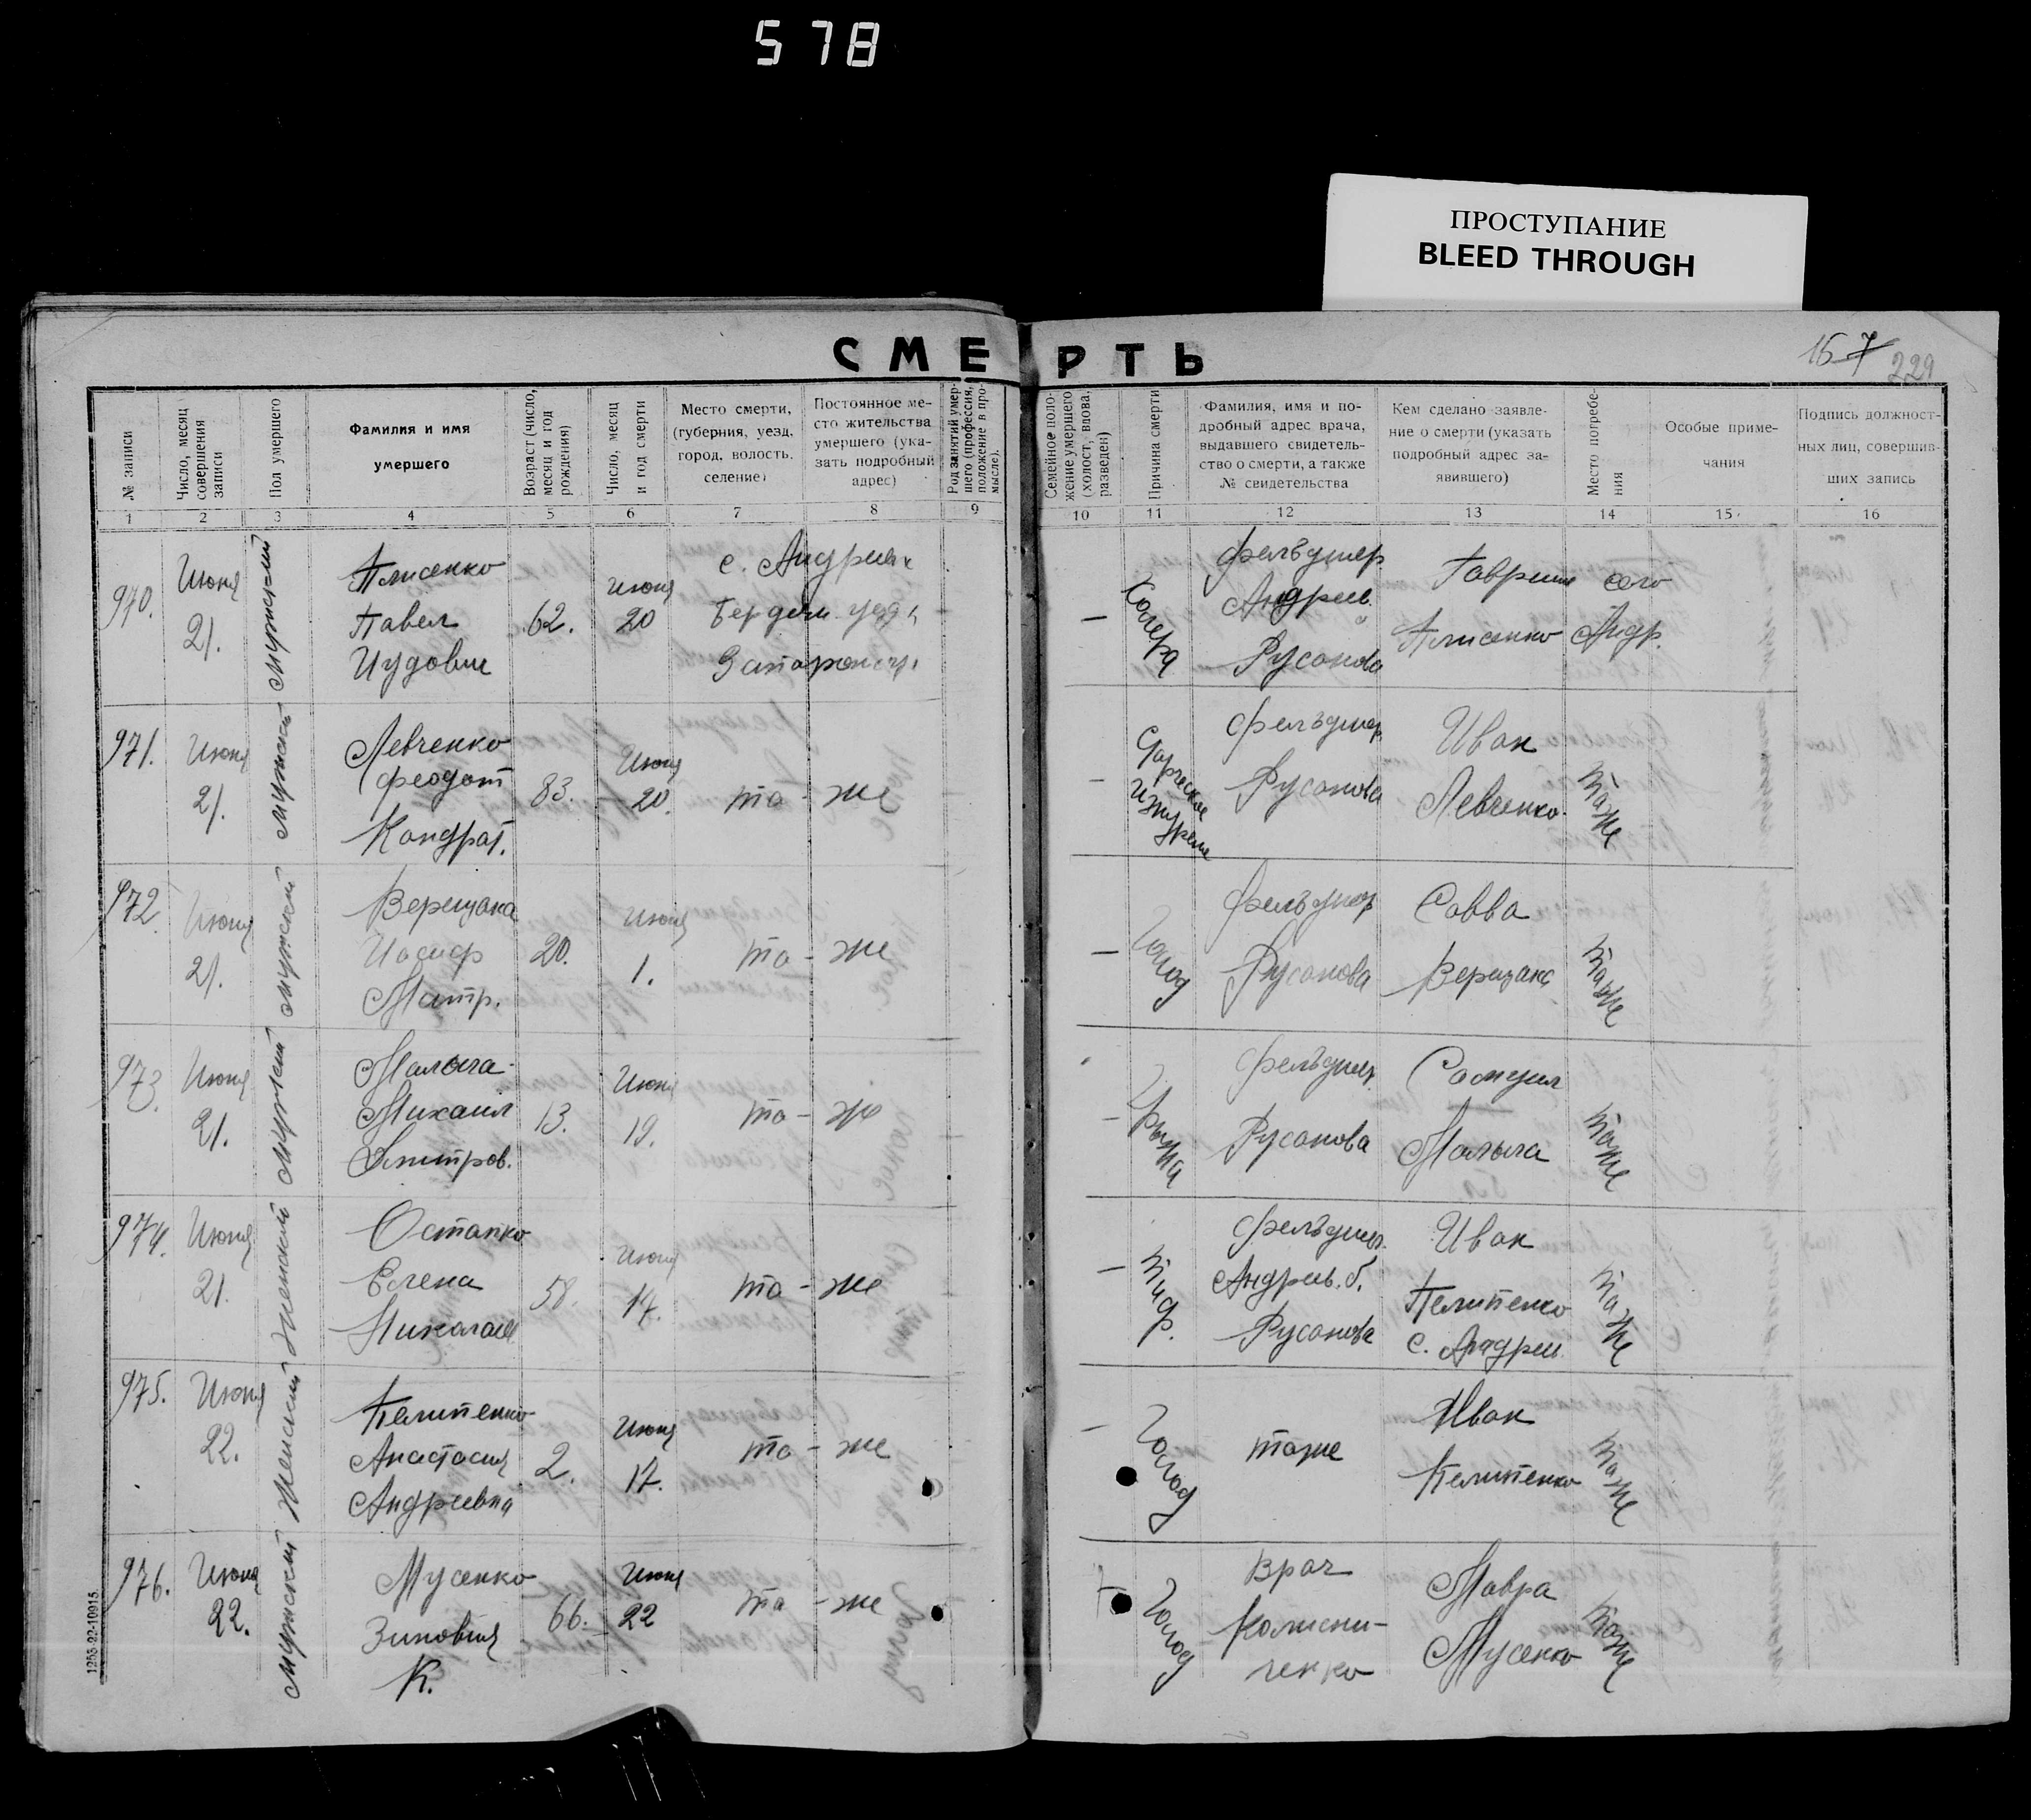 578
ПРОСТУПАНИЕ
BLEED THROUGH
СМЕРТЬ
157 229
№ записи
Число, месяц совершения записи
Пол умершего
Фамилия и имя
умершего
Возраст (число, месяц и год рождения)
Число, месяц и год смерти
Место смерти,
(губерния, уезд,
город, волость,
селение)
Постоянное ме-
сто жительства
умершего (ука-
зать подробный
адрес)
Род занятий умер-
шего (профессия,
положение в про-
мысле).
Семейное поло-
жение умершего
(холост, вдова,
разведен)
Причина смерти
Фамилия, имя и по-
дробный адрес врача,
выдавшего свидетель-
ство о смерти, а также
№ свидетельства
Кем сделано заявле-
ние о смерти (указать
подробный адрес за-
явившего)
Место погребе-
ния
Особые приме-
чания
Подпись должност-
ных лиц, совершив-
ших запись
1 2 3 4 5 6 7 8 9 10 11 12 13 14 15 16
970.
Июня
21.
Мужской
Плисенко
Павел
Иудович
62.
Июня
20
с. Андриев
Бердян. уезд
Запорожск.
Холера
фельдшер
Андреев.
Русанова
Гавриил
Плисенко
село
Андр.
971.
Июня
21.
Мужской
Левченко
Феодот
Кондрат.
83.
Июня
20.
то - же
Старческое
изнурение
фельдшер
Русанова
Иван
Левченко.
тоже
972.
Июня
21.
Мужской
Верещака
Иосиф
Матр.
20.
Июня
1.
то - же
Голод
фельдшер
Русанова
Савва
Верещака
тоже
973.
Июня
21.
Мужской
Малыга
Михаил
Дмитров.
13.
Июня
19.
то - же
Грыжа
фельдшер.
Русанова
Самуил
Малыга
тоже
974.
Июня
21.
Женский
Остапко
Елена
Николаев
58.
Июня
17.
то - же
тиф.
фельдшер.
Андреев. б.
Русанова
Иван
Пелипенко
с. Андреев.
тоже
975.
Июня
22.
Женский
Пелипенко
Анастасия
Андреевна
2.
Июня
17.
то - же
Голод
тоже
Иван
Пелипенко
тоже
976.
Июня
22.
Мужской
Мусенко
Зиновий
К.
66.
Июня
22
то - же
Голод
Врач
Колисни-
ченко
Мавра
Мусенко
тоже
1255-22-10915.